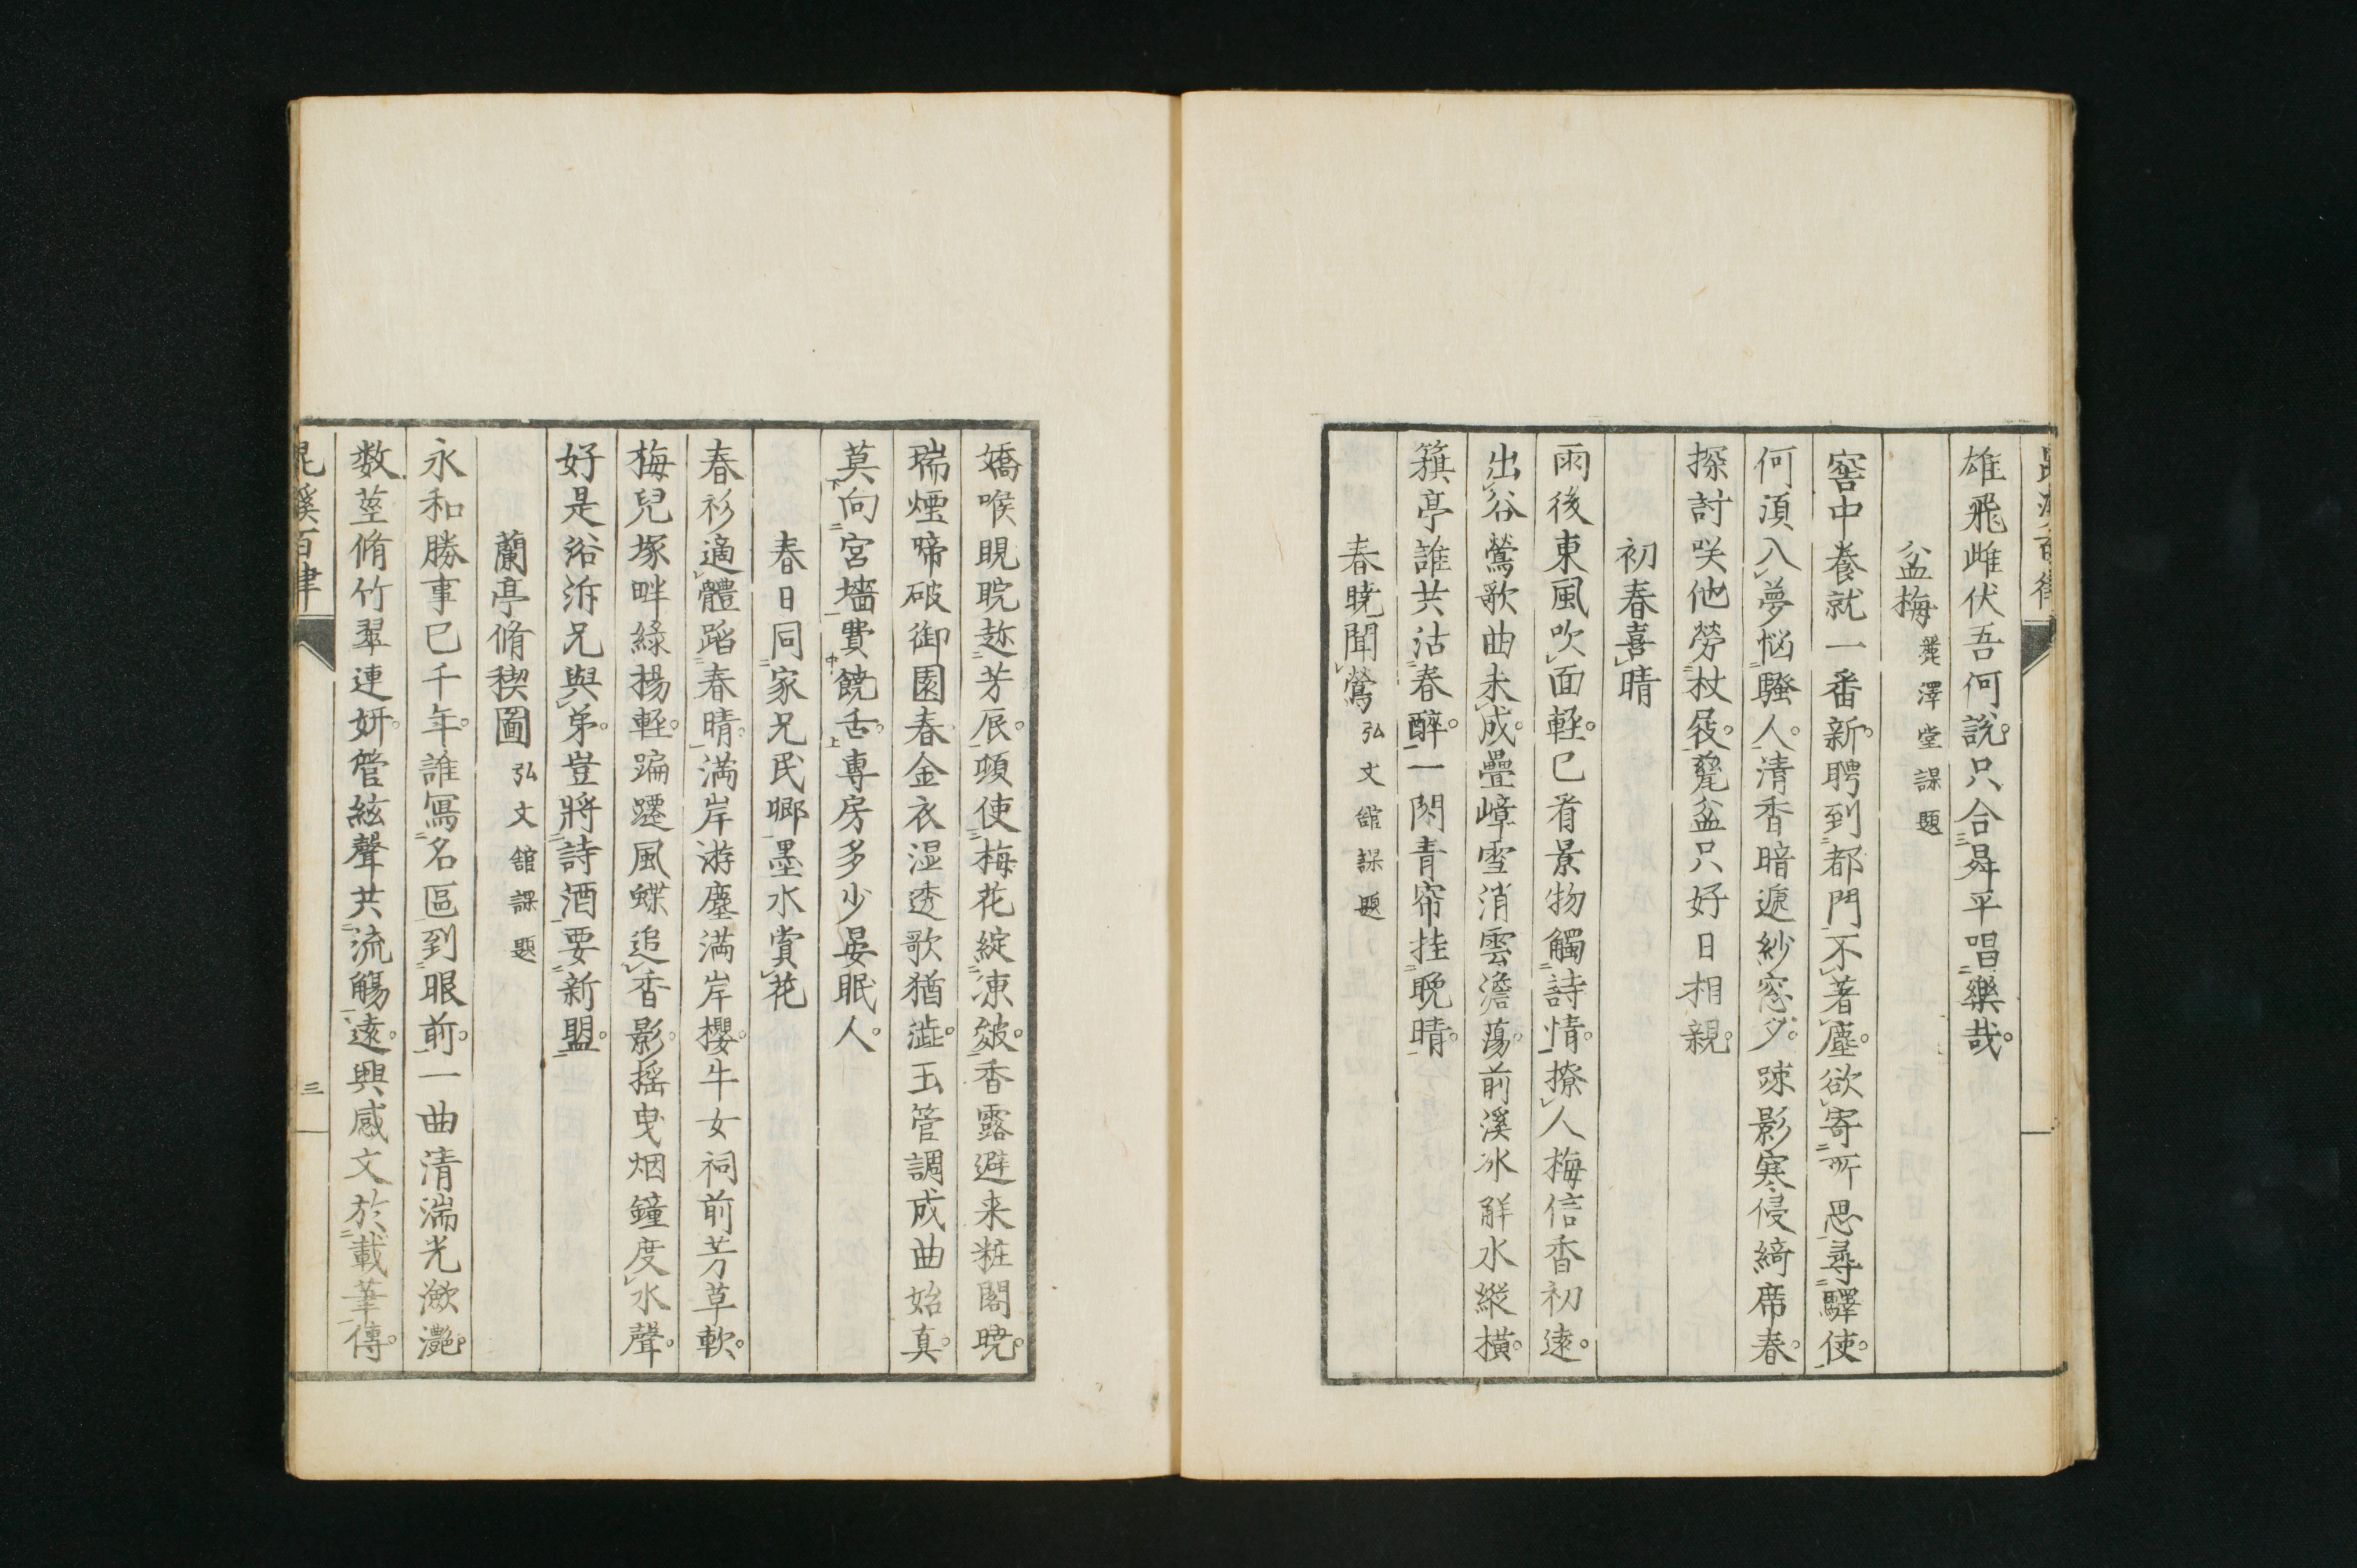 雄飛雌伏吾何說只合昇平唱樂哉
盆梅 麗澤堂課題
窖中養就一番新聘到都門不著塵欲寄所思尋驛使
何須入夢惱騷人清香暗遞紗窓夕踈影寒侵綺席春
探討咲他勞杖屐甕盆只好日相親
初春喜晴
雨後東風吹面輕已看景物觸詩情撩人梅信香初遠
出谷鶯歌曲未成疊嶂雪消雲澹蕩前溪氷解水縱橫
籏亭誰共沽春醉一閃青帘挂晚晴
春曉聞鶯 弘文館課題
嬌喉睍睆趂芳辰頓使梅花綻凍皴香露避来粧閣曉
瑞煙啼破御園春金衣湿透歌猶澁玉管調成曲始真
莫向宮墻費饒舌專房多少晏眠人
春日同家兄民卿墨水賞花
春衫適體蹈春晴満岸游塵満岸櫻牛女祠前芳草軟
梅兒塚畔綠楊輕蹁躚風蝶追香影揺曳烟鐘度水聲
好是浴沂兄與弟豈將詩酒要新盟
蘭亭脩禊圖 弘文館課題
永和勝事已千年誰寫名區到眼前一曲清湍光瀲灔
数莖脩竹翠連妍管絃聲共流觴遠興感文於載筆傳
溪百律 三